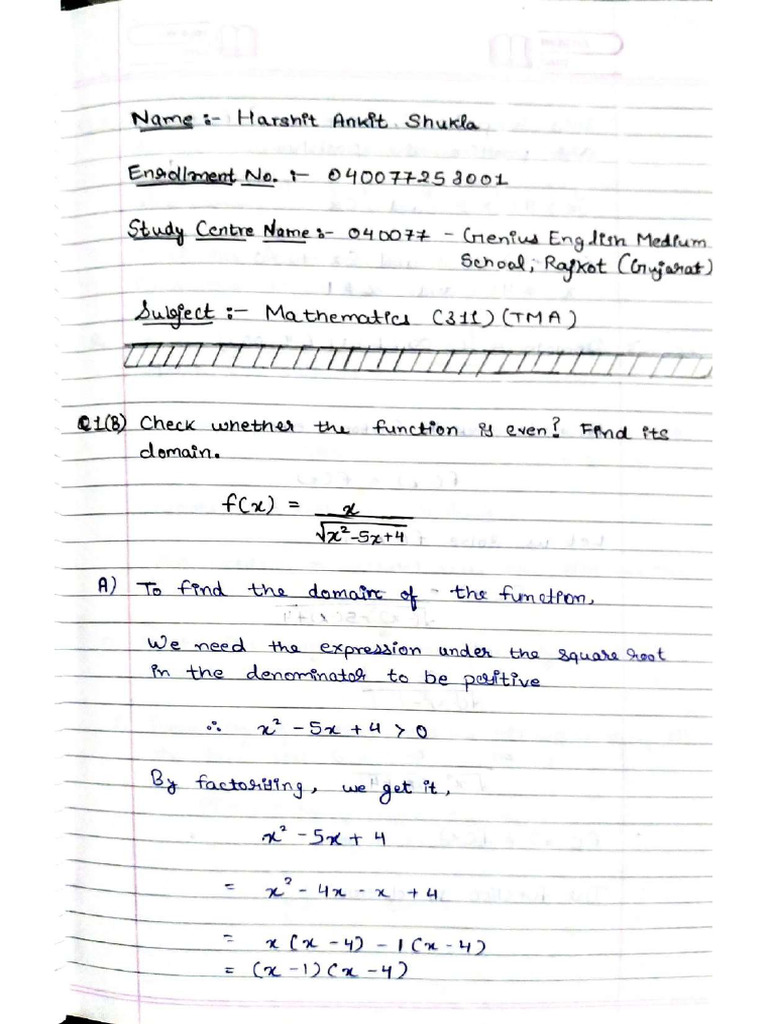 Name :- Harshit Ankit Shukla
Enrollment No. :- 040077253001
Study Centre Name :- 040077 - Genius English Medium
School, Rajkot (Gujarat)
Subject :- Mathematics (311) (TMA)
Q1(B) Check whether the function is even? Find its
domain.
f(x) = x / √x² - 5x + 4
A) To find the domain of the function,
We need the expression under the square root
in the denominator to be positive
∴ x² - 5x + 4 > 0
By factorising, we get it,
x² - 5x + 4
= x² - 4x - x + 4
= x (x - 4) - 1 (x - 4)
= (x - 1) (x - 4)